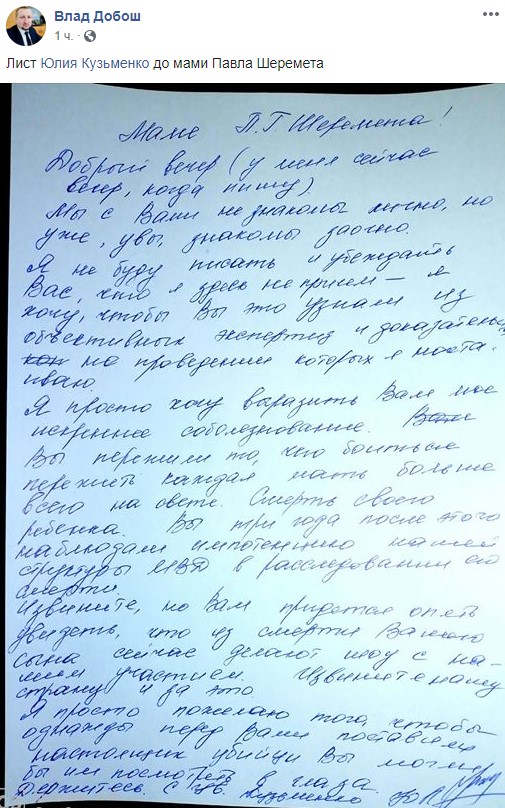 Влад Добош
1 ч. ·
Лист Юлия Кузьменко до мами Павла Шеремета
Маме П.Г Шеремета!
Добрый вечер (у меня сейчас
вечер, когда пишу).
Мы с Вами не знакомы лично, но
уже, увы, знакомы заочно.
Я не буду писать и убеждать
Вас, что я здесь не причем – я
хочу, чтобы Вы это узнали из
объективных экспертиз и доказательс
на проведении которых я наста-
иваю.
Я просто хочу выразить Вам мое
искреннее соболезнование. Вам
Вы пережили то, чего боиться
пережить каждая мать больше
всего на свете. Смерть своего
ребенка. Вы три года после этого
наблюдали импотенцию нашей
структуры МВД в расследовании его
смерти.
Извините, но Вам придется опять
увидеть, что из смерти Вашего
сына сейчас делают шоу с на-
шим участием. Извините нашу
страну и за это.
Я просто пожелаю того, чтобы
однажды перед Вами поставили
настоящих убийц и Вы могли
бы им посмотреть в глаза.
Держитесь. С ув. Кузьменко Ю.